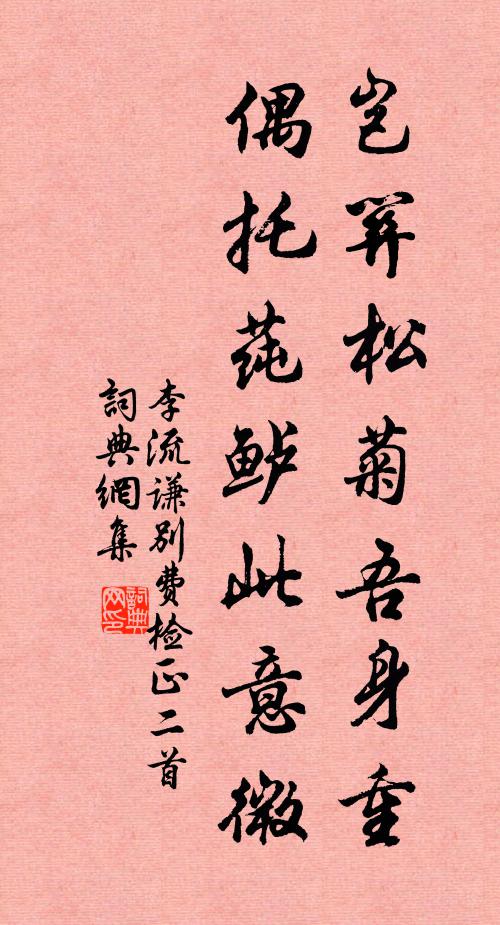 岂关松菊吾身重
偶托莼鲈此意微
李流谦别费检正二首
詞典網集
詞典网印